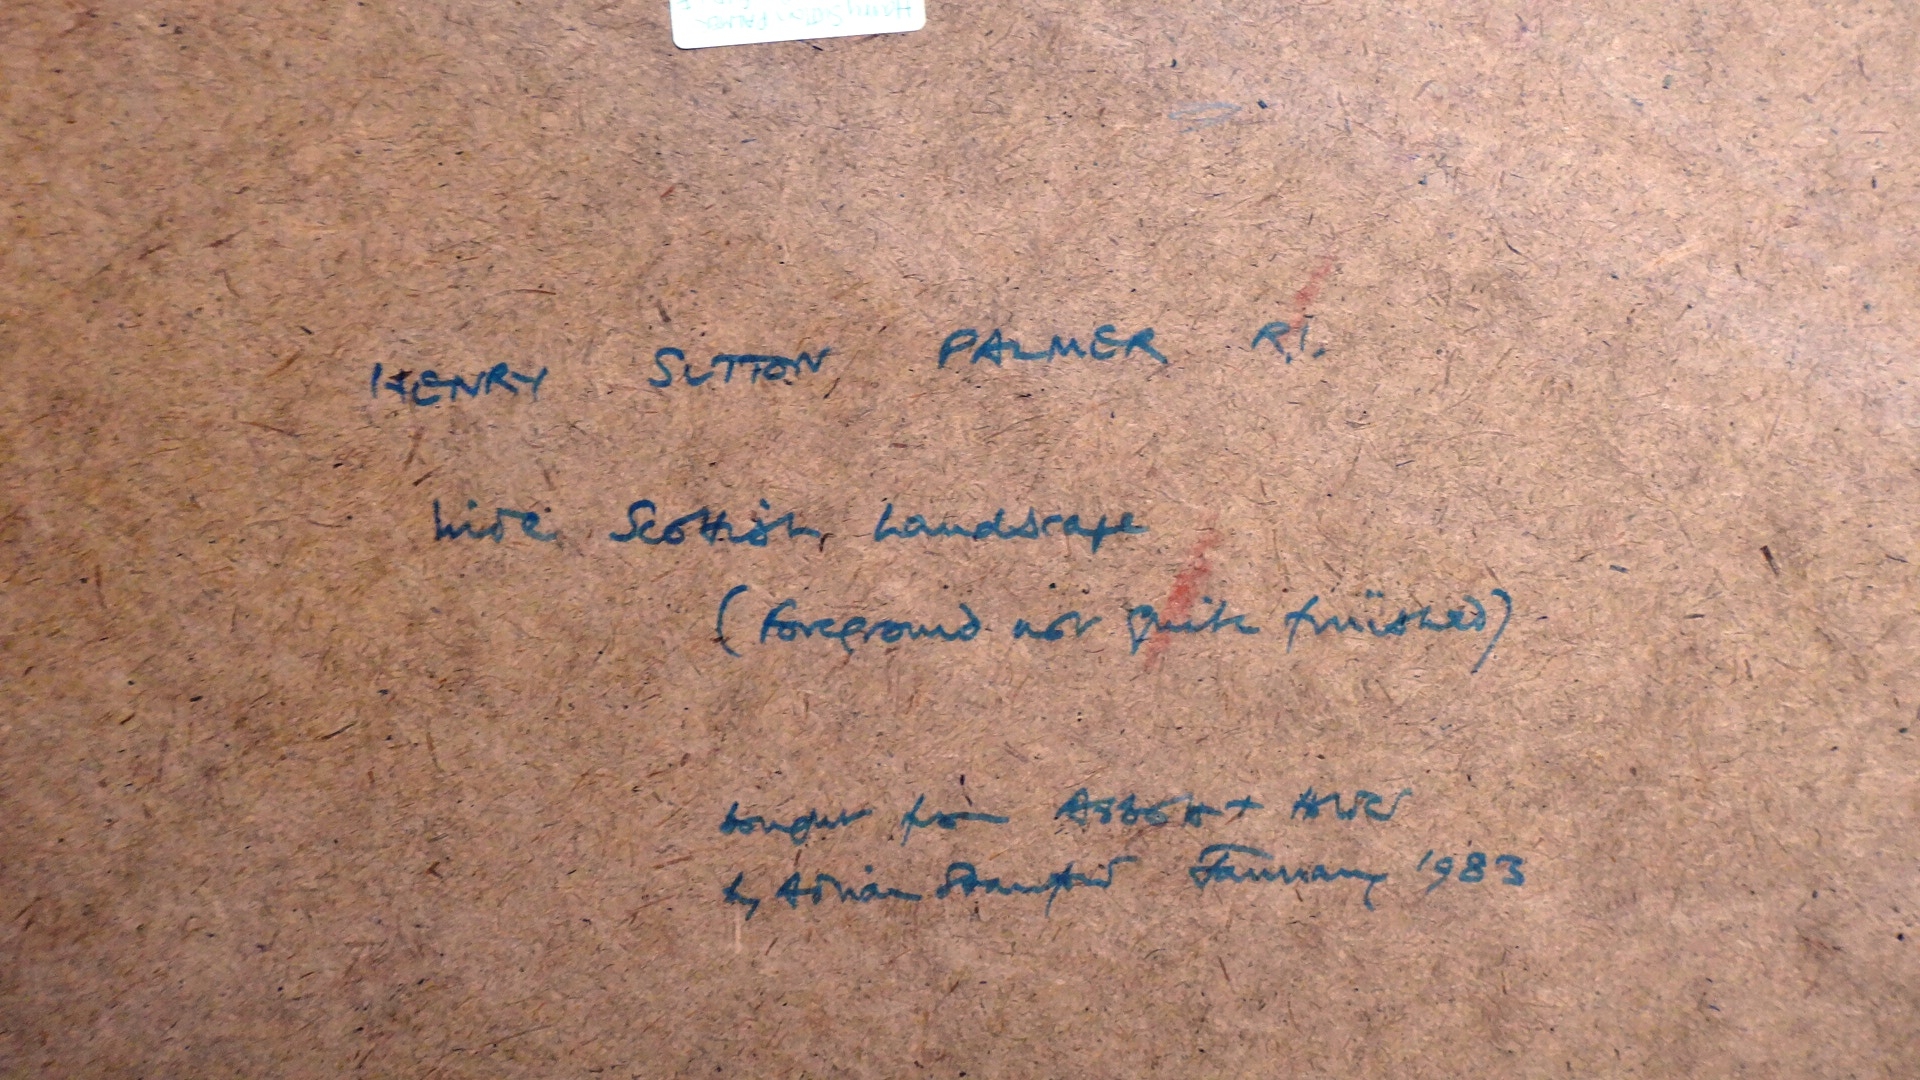 Harry Sutton Palmer
HENRY SUTTON PALMER R.I.
Scottish Landscape
(foreground not quite finished)
bought from Abbott +
by Adrian January 1983